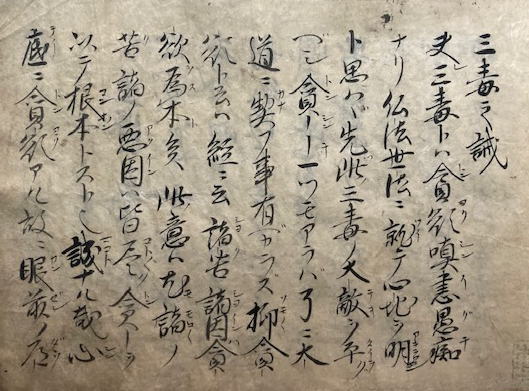 三毒之誡
夫三毒トハ貪欲嗔恚愚痴
ナリ仏法世法ニ就テ心地ヲ明
ト思ハヾ先此三毒ノ大敵ヲ平
貪ノ一ツモアラバ了ニ大
道ニ契フ事有ベカラズ抑貪
欲ト云ハ経ニ云諸苦諸因貪
欲為本矣此ノ意ハ諸ノ
苦諸ノ悪因ハ皆尽ク貪ヲ
以テ根本トスト也誠ナル哉心
底ニ貪欲アル故ニ眼前ノ